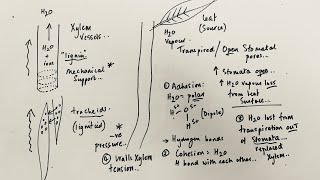 H₂O
Xylem
Vessels..
H₂O
+
ions
"lignin"
mechanical
support..
tracheids
(lignified)
*
-ve
pressure..
⑥ Walls Xylem
tension...
leaf
(Source)
H₂O
Vapour
Transpired / Open Stomatal
pores...
↑ Stomata open..
↑ H₂O vapour loss
from leaf
surface..
① Adhesion:
H₂O = polar
H H
O
(Dipole)
→ Hydrogen bonds
② Cohesion = H₂O
H bond with each other..
③ H₂O lost from
transpiration out of
Stomata
replaced
Xylem..